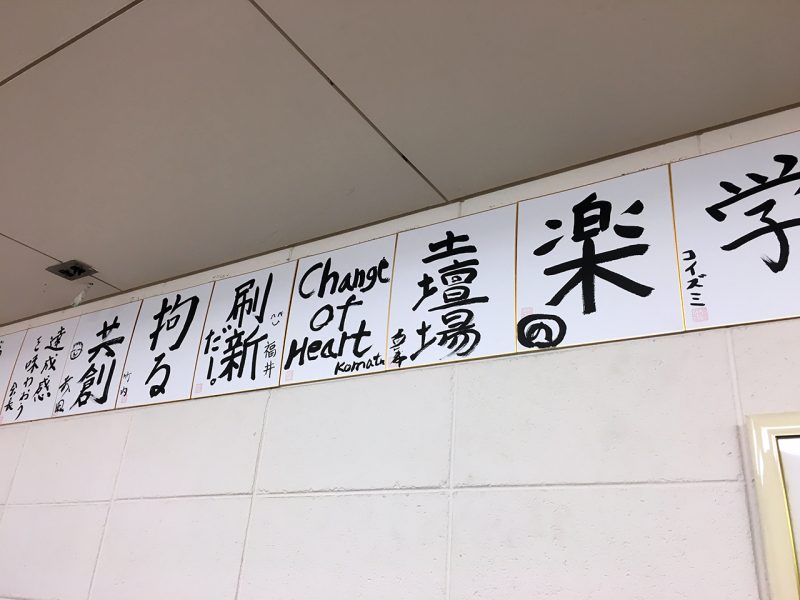 学
コイズミ
楽
の
土壇場
Change
of
Heart
Komatu
刷新
だ!
福井
拘る
竹内
共創
武田
達成感
を味わおう